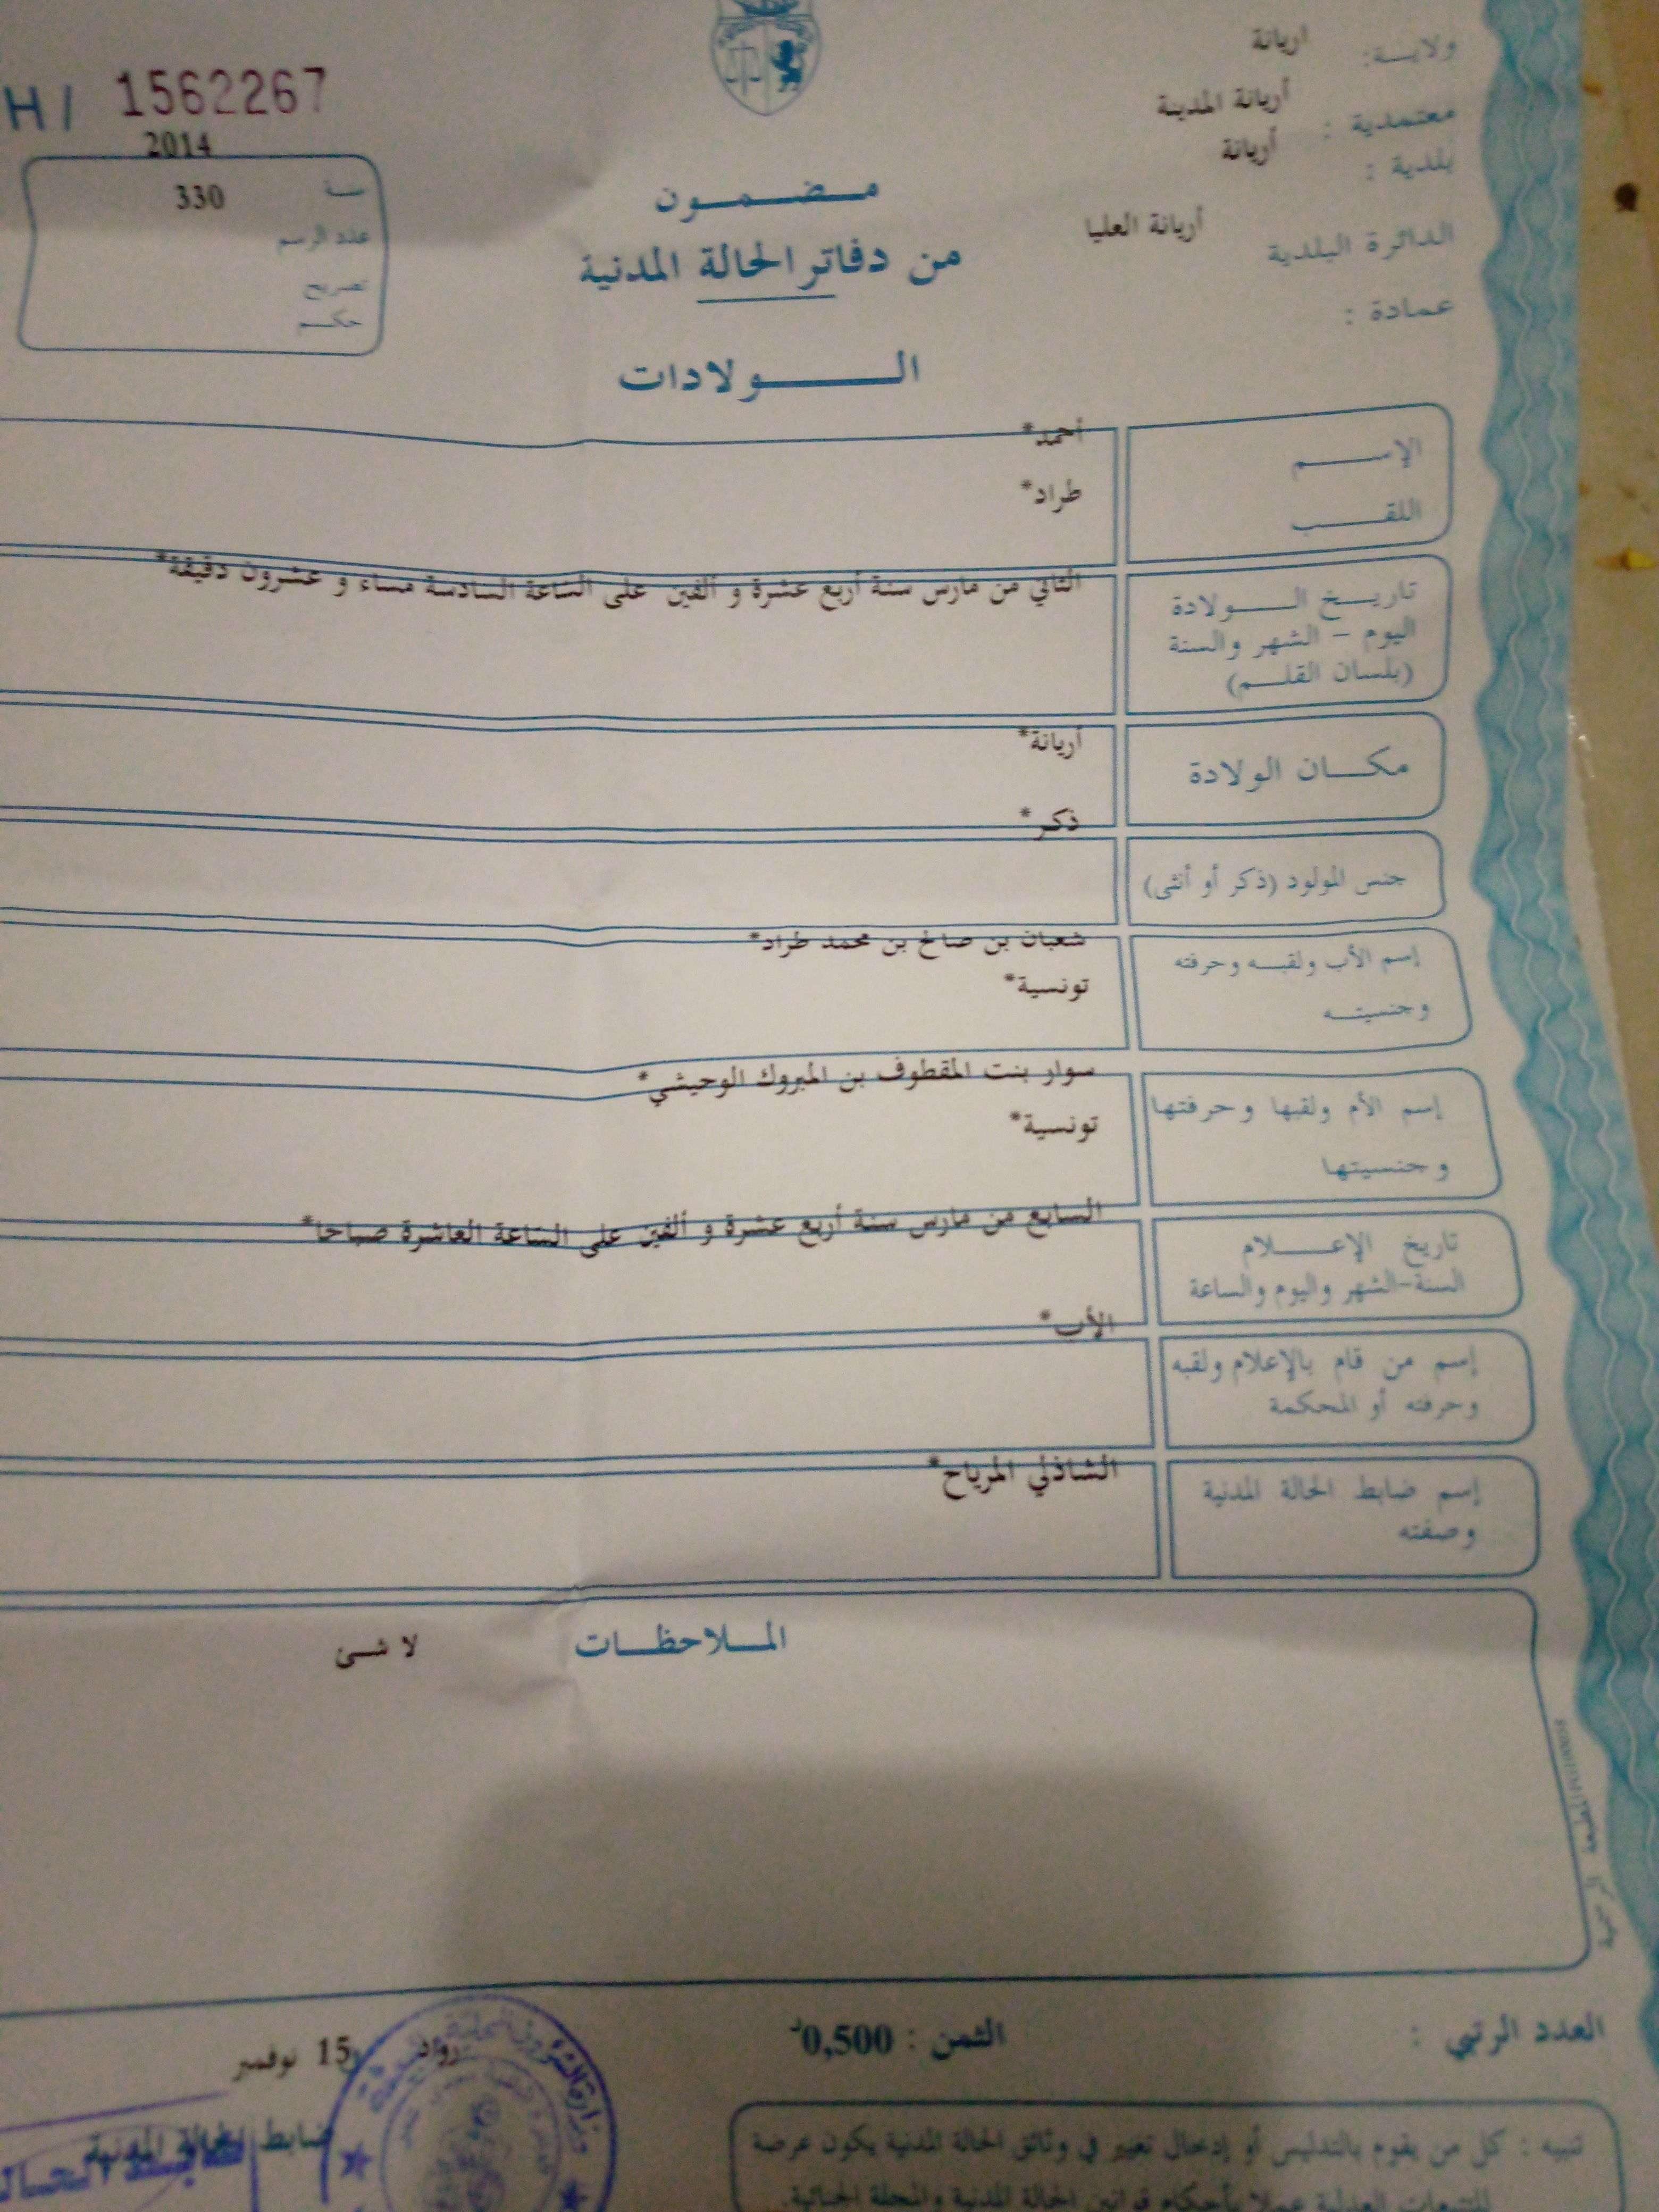 ولايـــة: اريانة
معتمدية : أريانة المدينة
بلدية : أريانة
الدائرة البلدية أريانة العليا
عمادة :
H / 1562267
2014
سنة 330
عدد الرسم
تصريح
حكم
مضمون
من دفاتر الحالة المدنية
الولادات
الإسم أحمد*
اللقب طراد*
تاريخ الولادة
اليوم - الشهر والسنة
(بلسان القلم)
الثاني من مارس سنة أربع عشرة و ألفين على الساعة السادسة مساء و عشرون دقيقة*
مكان الولادة أريانة*
جنس المولود (ذكر أو أنثى) ذكر*
إسم الأب ولقبه وحرفته شعبان بن صالح بن محمد طراد*
وجنسيته تونسية*
إسم الأم ولقبها وحرفتها سوار بنت المقطوف بن المبروك الوحيشي*
وجنسيتها تونسية*
تاريخ الإعلام السابع من مارس سنة أربع عشرة و ألفين على الساعة العاشرة صباحا*
السنة-الشهر واليوم والساعة
إسم من قام بالإعلام ولقبه الأب*
وحرفته أو المحكمة
إسم ضابط الحالة المدنية الشاذلي المرياح*
وصفته
الملاحظات لا شئ
العدد الرتبي :
الثمن : 0,500د
رواد 15 نوفمبر
ضابط الحالة المدنية
تنبيه : كل من يقوم بالتدليس أو إدخال تغيير في وثائق الحالة المدنية يكون عرضة
للتتبعات العدلية عملا بأحكام قوانين الحالة المدنية والمجلة الجنائية.